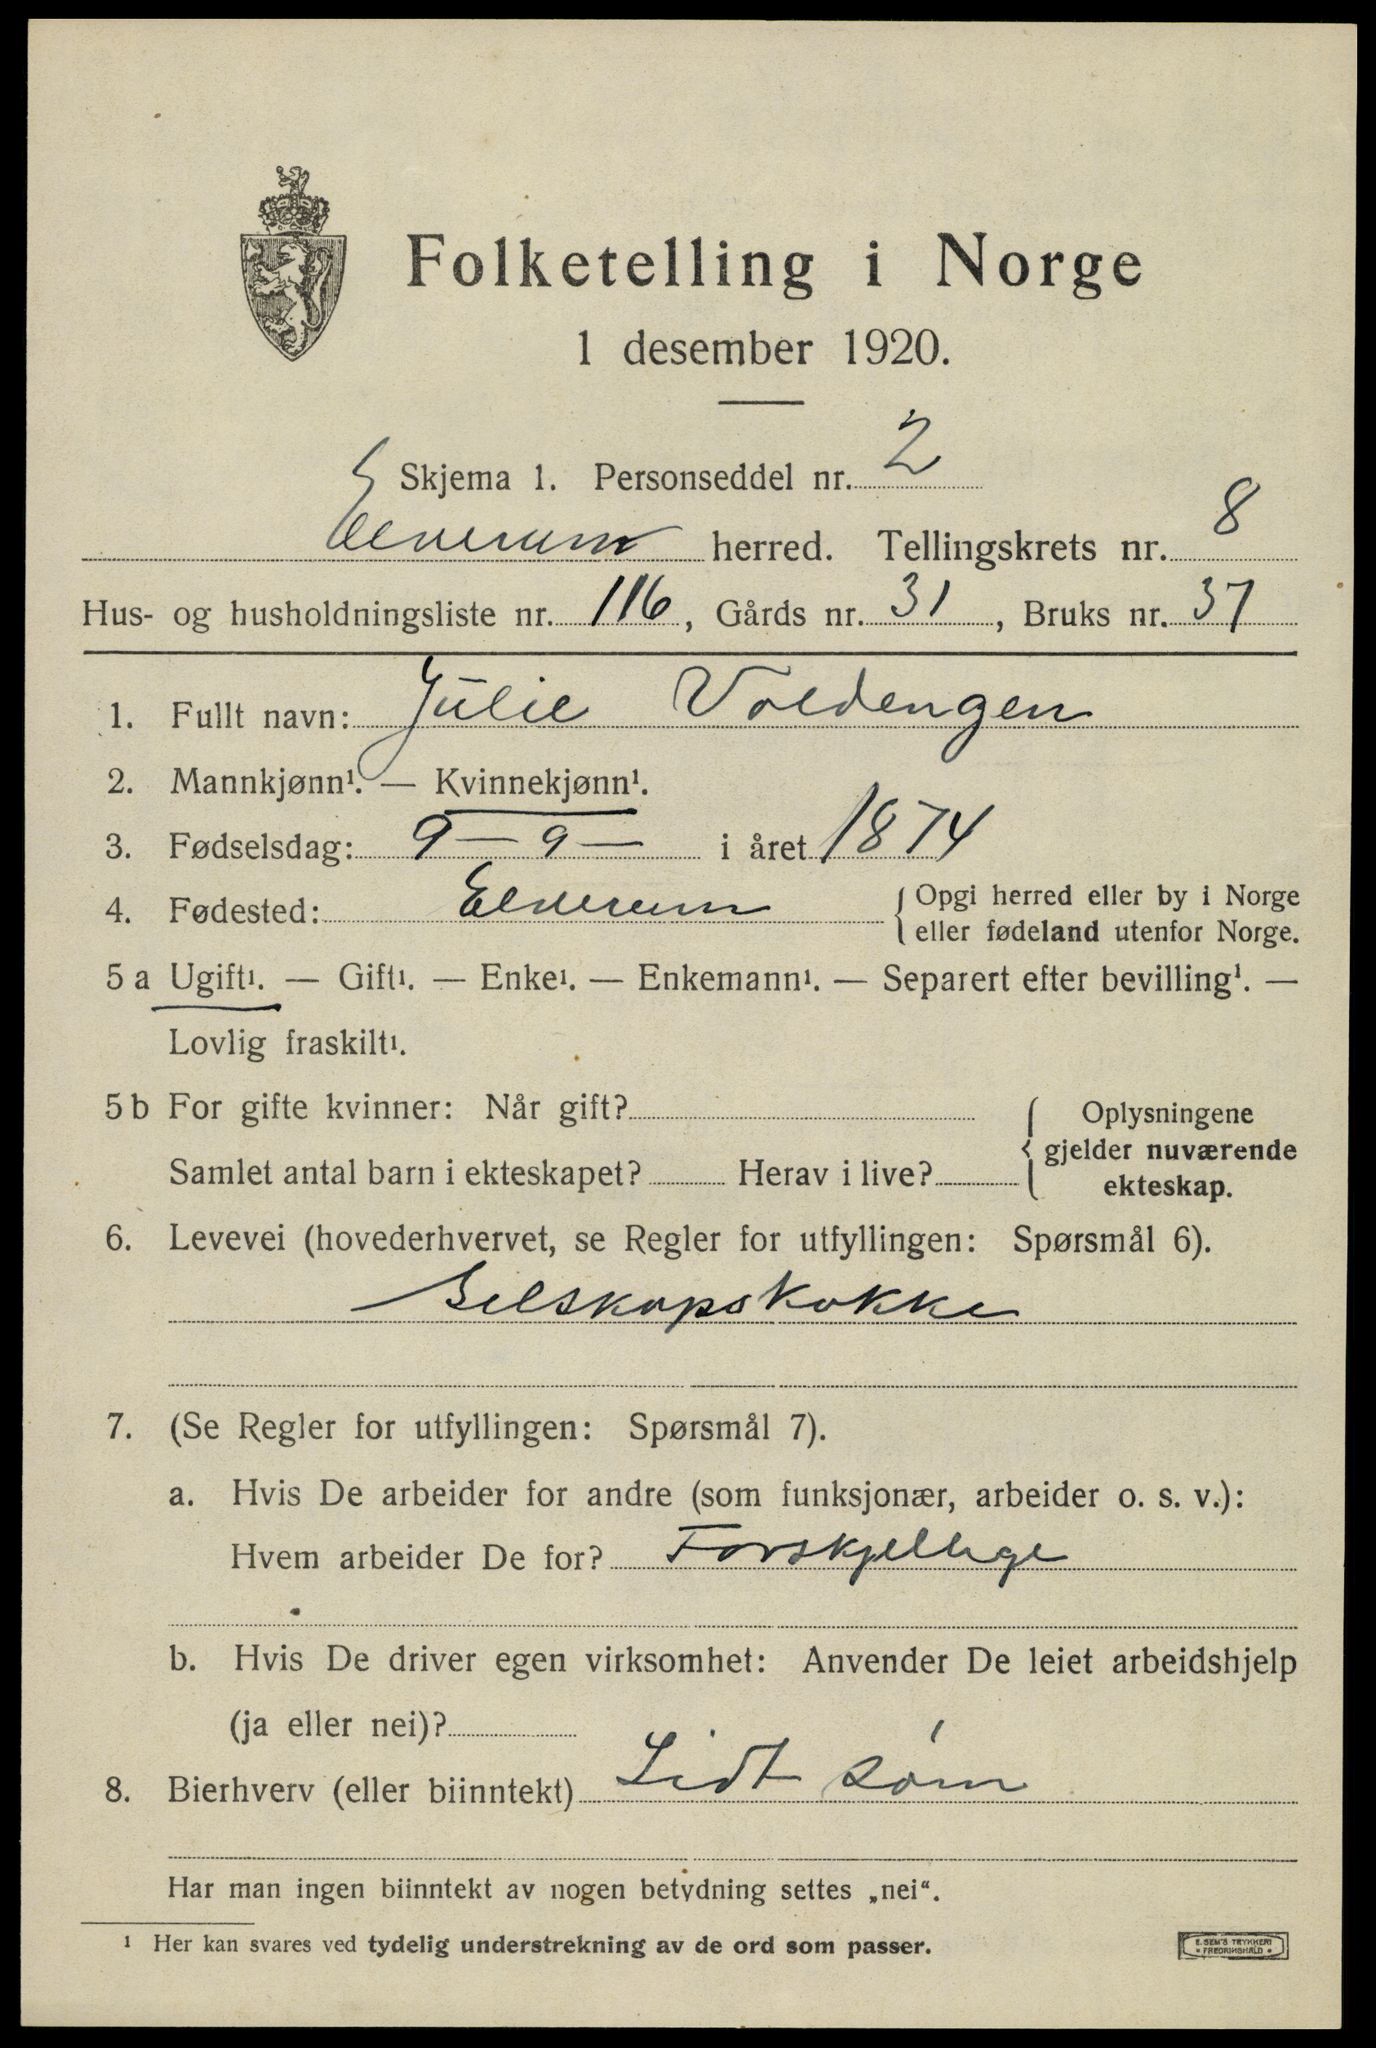 Folketelling i Norge
1 desember 1920.
Skjema 1. Personseddel nr. 2
Elverum herred. Tellingskrets nr. 8
Hus- og husholdningsliste nr. 116, Gårds nr. 31, Bruks nr. 37
1. Fullt navn: Julie Voldengen
2. Mannkjønn¹. — Kvinnekjønn¹.
3. Fødselsdag: 9 — 9 — i året 1874
4. Fødested: Elverum { Opgi herred eller by i Norge
eller fødeland utenfor Norge.
5 a Ugift¹. — Gift¹. — Enke¹. — Enkemann¹. — Separert efter bevilling¹. —
Lovlig fraskilt¹.
5 b For gifte kvinner: Når gift?
Samlet antal barn i ekteskapet? Herav i live?
{ Oplysningene
gjelder nuværende
ekteskap.
6. Levevei (hovederhvervet, se Regler for utfyllingen: Spørsmål 6).
Selskapskokke
7. (Se Regler for utfyllingen: Spørsmål 7).
a. Hvis De arbeider for andre (som funksjonær, arbeider o. s. v.):
Hvem arbeider De for? Forskjellige
b. Hvis De driver egen virksomhet: Anvender De leiet arbeidshjelp
(ja eller nei)?
8. Bierhverv (eller biinntekt) Lidt søm
Har man ingen biinntekt av nogen betydning settes „nei“.
¹ Her kan svares ved tydelig understrekning av de ord som passer.
E. SEM'S TRYKKERI
• FREDRIKSHALD •